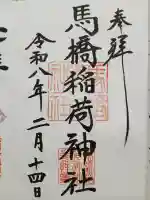 奉拝
馬橋稲荷神社
令和八年二月十四日